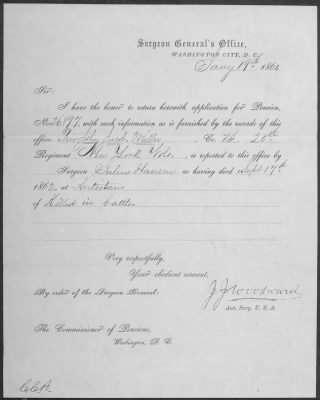 Surgeon General's Office,
WASHINGTON CITY, D. C.
Jany 19th, 1864
Sir:
I have the honor to return herewith application for Pension,
No. 26197, with such information as is furnished by the records of this
office. Jacob Miller, Co. B. 20th
Regiment New York Vols., is reported to this office by
Surgeon Julius Hausen as having died Sept 17th
1862, at Antietam
of Killed in battle
Very respectfully,
Your obedient servant,
By order of the Surgeon General:
J J Woodward
Ast. Surg. U. S. A.
The Commissioner of Pensions,
Washington, D. C.